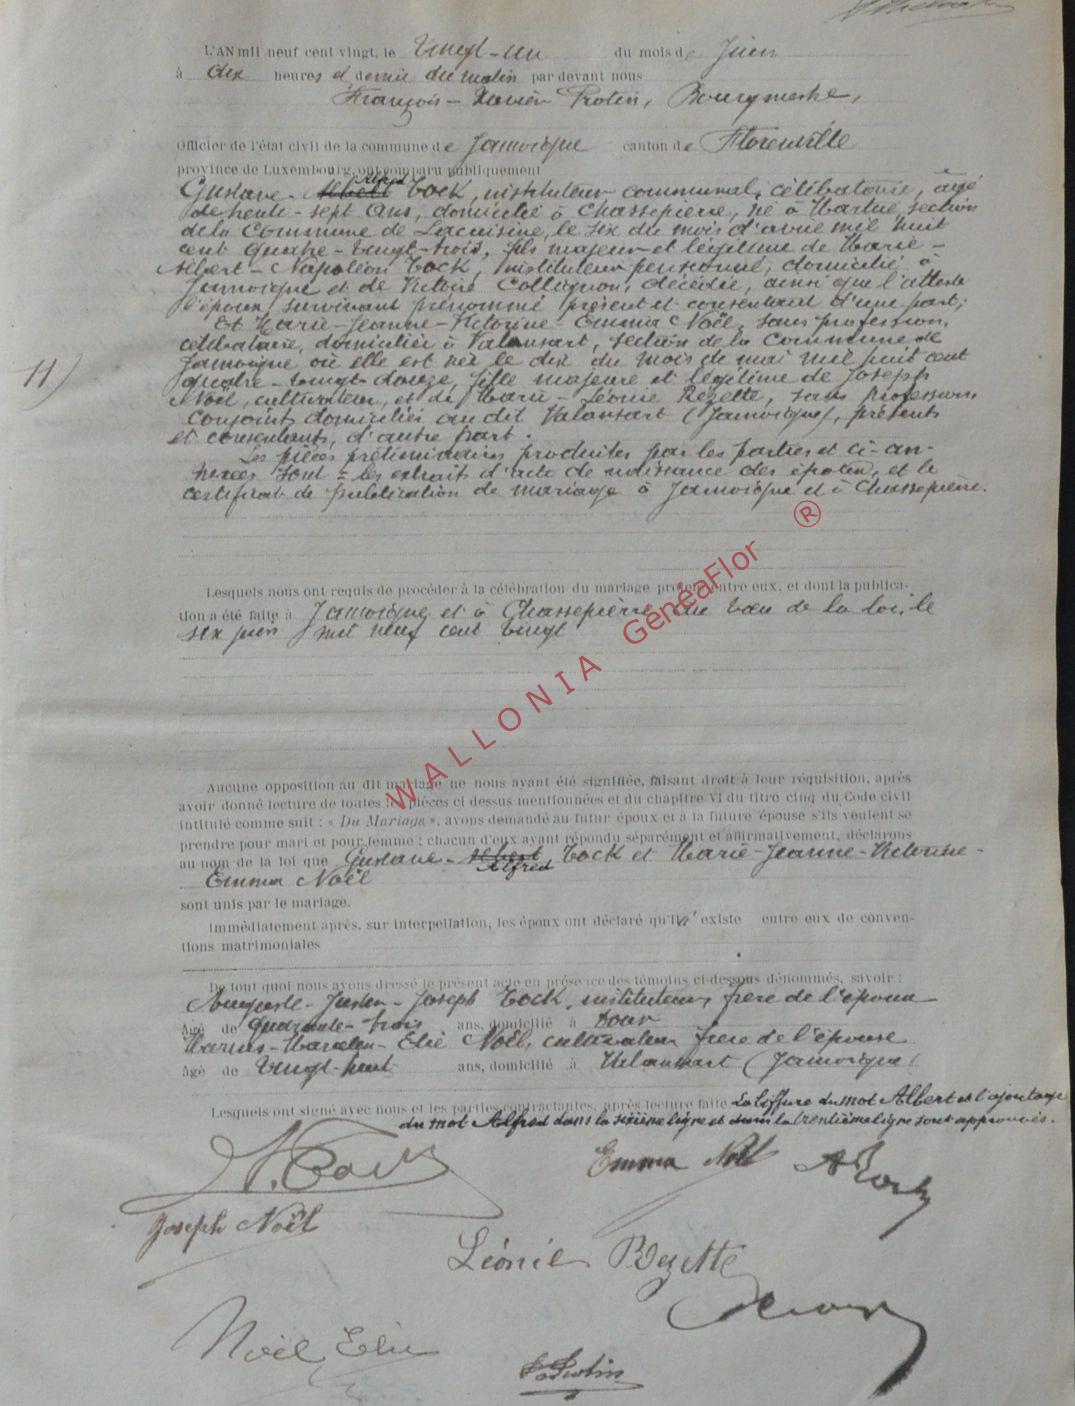 L'AN mil neuf cent vingt, le vingt-un du mois de Juin
à dix heures et demie du matin par devant nous
François-Xavier Protin, Bourgmestre,
Officier de l'état civil de la commune de Jamoigne canton de Florenville
province de Luxembourg, ont comparu publiquement
Alfred
Gustave-Albert Tock, instituteur communal, célibataire, âgé
de trente-sept ans, domicilié à Chassepierre, né à Martué, section
de la Commune de Lacuisine, le six du mois d'avril mil huit
cent quatre-vingt-trois, fils majeur et légitime de Marie-
Albert-Napoléon Tock, instituteur pensionné, domicilié à
Jamoigne et de Victoire Collignon, décédée, ainsi que l'atteste
l'époux survivant prénommé présent et consentant d'une part;
Et Marie-Jeanne-Victorine-Emma Noël, sans profession,
célibataire, domiciliée à Valansart, section de la Commune de
Jamoigne où elle est née le dix du mois de mai mil huit cent
11)
quatre-vingt-douze, fille majeure et légitime de Joseph
Noël, cultivateur, et de Marie-Léonie Rézette, sans profession
conjoints domiciliés au dit Valansart (Jamoigne), présents
et consentants, d'autre part.
Les pièces préliminaires produites par les parties et ci-an-
nexées sont = les extraits d'acte de naissance des époux, et le
certificat de publication de mariage à Jamoigne et à Chassepierre.
Lesquels nous ont requis de procéder à la célébration du mariage projeté entre eux, et dont la publica-
tion a été faite à Jamoigne et à Chassepierre, au vœu de la loi, le
six juin mil neuf cent vingt
WALLONIA GénéaFlor ®
Aucune opposition au dit mariage ne nous ayant été signifiée, faisant droit à leur réquisition, après
avoir donné lecture de toutes les pièces ci dessus mentionnées et du chapitre VI du titre cinq du Code civil
intitulé comme suit : « Du Mariage », avons demandé au futur époux et à la future épouse s'ils veulent se
prendre pour mari et pour femme ; chacun d'eux ayant répondu séparément et affirmativement, déclarons
au nom de la loi que Gustave-Albert Tock et Marie-Jeanne-Victorine-
Alfred
Emma Noël
sont unis par le mariage.
Immédiatement après, sur interpellation, les époux ont déclaré qu'il n'existe entre eux de conven-
tions matrimoniales
De tout quoi nous avons dressé le présent acte en présence des témoins ci-dessous dénommés, savoir :
Auguste-Justin-Joseph Tock, instituteur, frère de l'époux
âgé de quarante-trois ans, domicilié à Dour
Marius-Marcelin-Elie Noël, cultivateur frère de l'épouse
âgé de vingt-huit ans, domicilié à Valansart (Jamoigne)
Lesquels ont signé avec nous et les parties contractantes, après lecture faite La biffure du mot Albert et l'ajoutage
du mot Alfred dans la sixième ligne et dans la trentième ligne sont approuvés.
Emma Noël A Tock
Joseph Noël
Léonie Rezette
Noël Elie